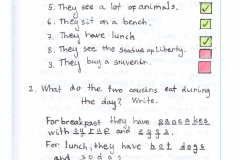 5. They see a lot of animals.
6. They sit on a bench.
7. They have lunch
8. They see the Statue of Liberty.
9. They buy a souvenir.
2. What do the two cousins eat during
the day? Write.
For breakfast they have pancakes
with syrup and eggs.
For lunch, they have hot dogs
and sodas